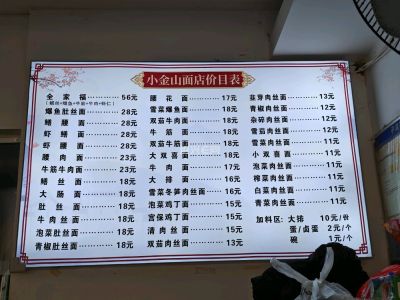 小金山面店价目表
全家福 56元
爆鱼肚丝面 28元
鳝腰面 28元
虾鳝面 28元
虾腰面 28元
腰肉面 23元
牛筋牛肉面 23元
鳝丝面 18元
大肠面 18元
肚丝面 18元
牛肉丝面 18元
泡菜肚丝面 18元
青椒肚丝面 18元
腰花面 17元
雪菜爆鱼面 18元
双菇牛肉面 18元
牛筋面 18元
双菇牛筋面 18元
大双喜面 18元
牛肉面 17元
大排面 16元
雪菜冬笋肉丝面 16元
泡菜鸡丁面 15元
宫保鸡丁面 15元
清肉丝面 15元
双菇肉丝面 13元
韭芽肉丝面 13元
青椒肉丝面 12元
杂碎肉丝面 12元
雪菇肉丝面 12元
雪菜肉丝面 11元
小双喜面 11元
泡菜肉丝面 11元
榨菜肉丝面 11元
白菜肉丝面 11元
青菜肉丝面 11元
加料区：大排 10元/份
蛋/卤蛋 2元/个
碗 1元/个